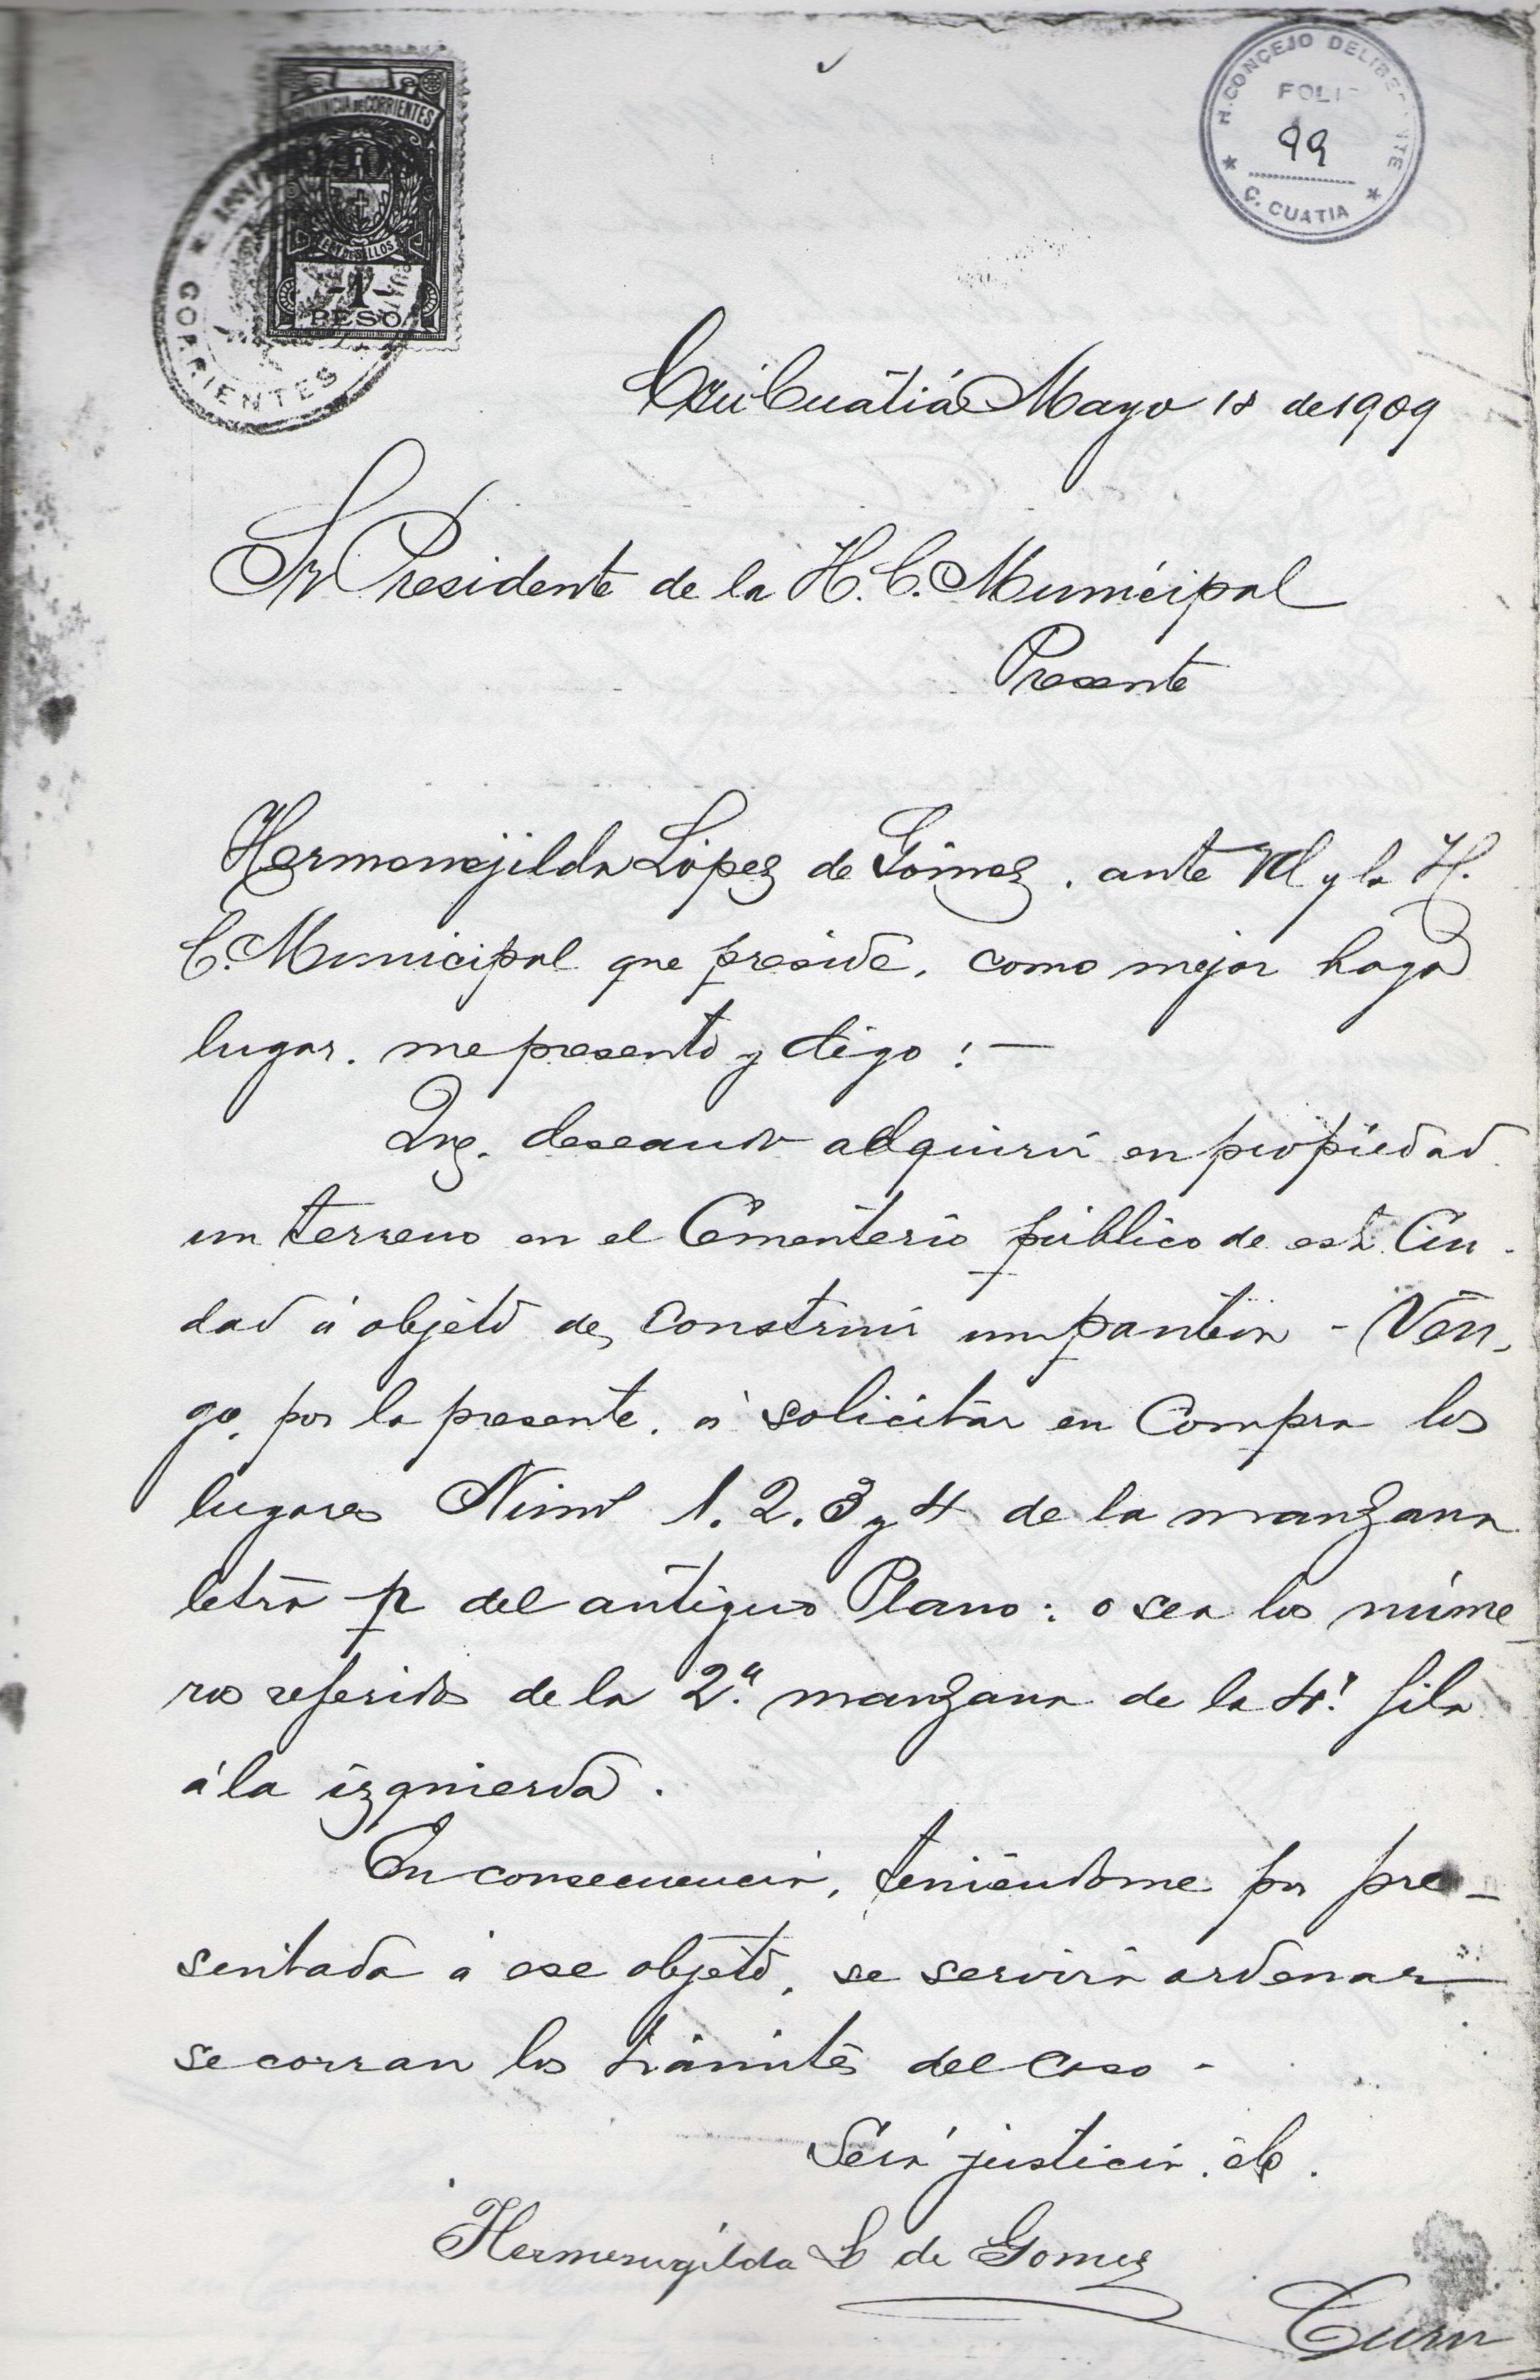 PROVINCIA DE CORRIENTES
LEY DE SELLOS
-1-
PESO
CORRIENTES
H. CONCEJO DELIBERANTE
FOLIO
99
C. CUATIA
Curuzú Cuatiá Mayo 18 de 1909
Sr Presidente de la H. C. Municipal
Presente
Hermenejilda López de Gómez. ante Vd y la H.
C. Municipal que preside, como mejor haya
lugar. me presento y digo: —
Que. deseando adquirir en propiedad
un terreno en el Cementerio público de esta Ciu-
dad á objeto de, construir un panteón - Ven-
go, por la presente, á solicitar en Compra los
lugares Núms 1. 2. 3 y 4 de la manzana
letra p del antiguo Plano: o sea los núme
ros referidos de la 2.ª manzana de la 4.ª fila
á la izquierda.
En consecuencia, teniéndome por pre-
sentada á ese objeto, se servirá ordenar
se corran los trámites del caso -
Será justicia. etc.
Hermenegilda L de Gomez